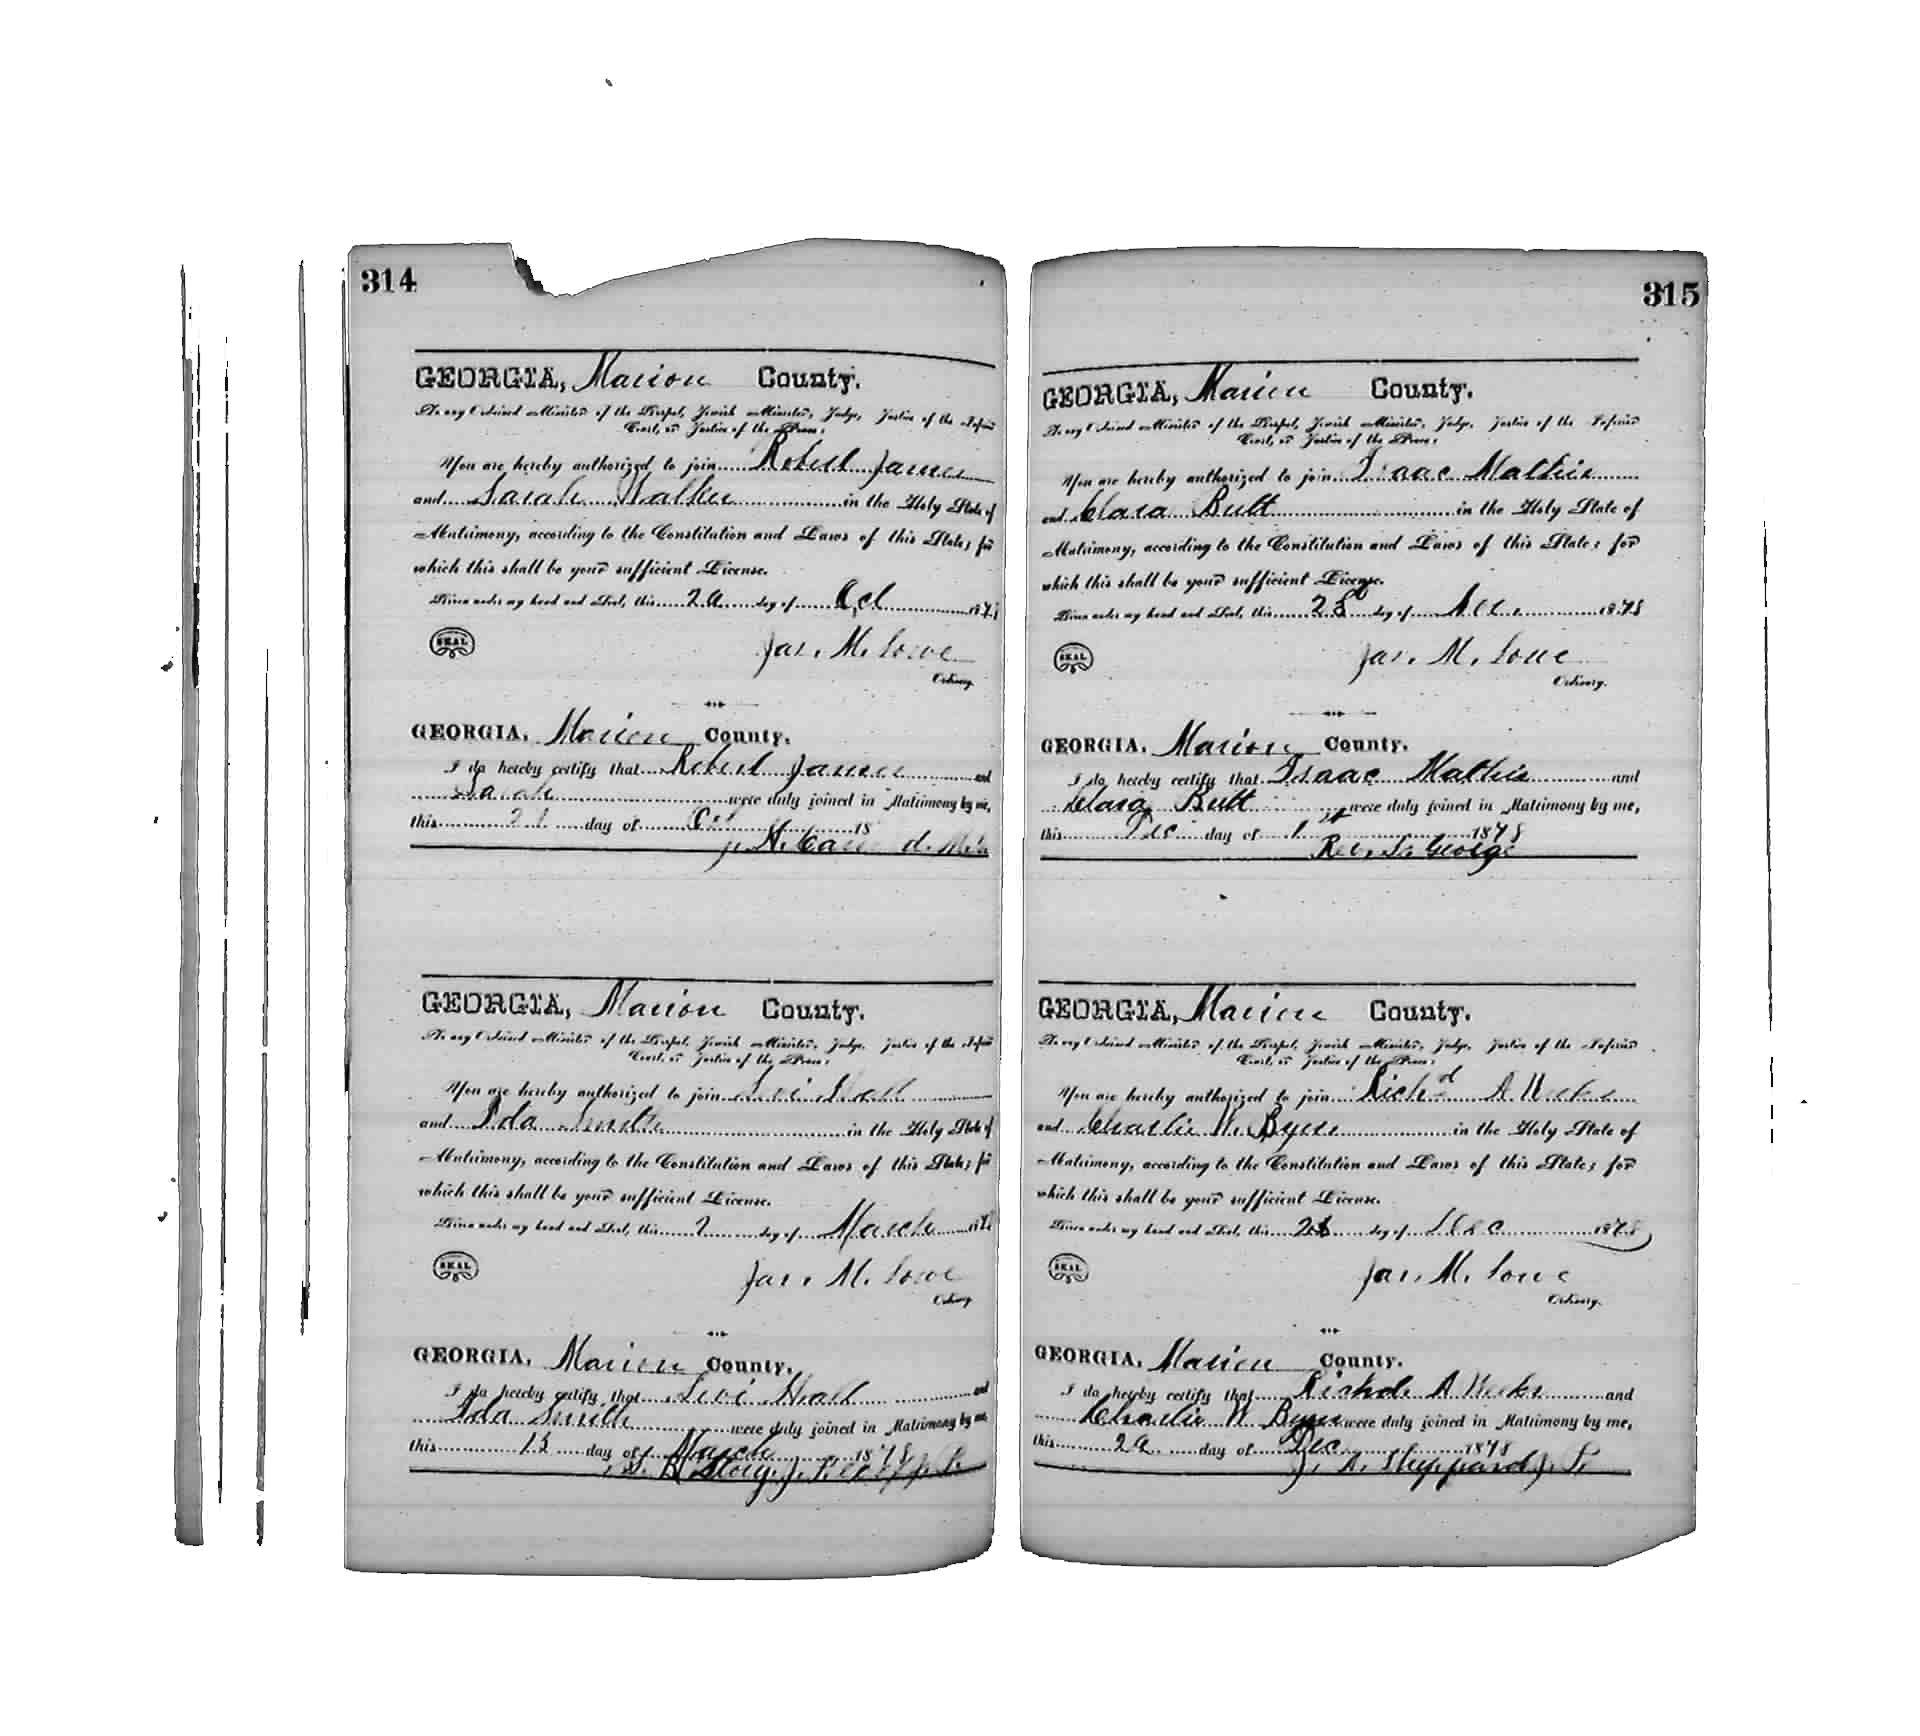 314
GEORGIA, Marion County.
To any Ordained Minister of the Gospel, Jewish Minister, Judge, Justice of the Inferior
Court, or Justice of the Peace:
You are hereby authorized to join Robert James
and Sarah Walker in the Holy State of
Matrimony, according to the Constitution and Laws of this State; for
which this shall be your sufficient License.
Given under my hand and Seal, this day of Oct 187
SEAL
Jas. M. Lowe
Ordinary.
GEORGIA, Marion County.
I do hereby certify that Robert James and
Sarah were duly joined in Matrimony by me,
this day of Oct 18
GEORGIA, Marion County.
To any Ordained Minister of the Gospel, Jewish Minister, Judge, Justice of the Inferior
Court, or Justice of the Peace:
You are hereby authorized to join Levi Hall
and Ida Smith in the Holy State of
Matrimony, according to the Constitution and Laws of this State; for
which this shall be your sufficient License.
Given under my hand and Seal, this 2 day of March 187
SEAL
Jas. M. Lowe
Ordinary.
GEORGIA, Marion County.
I do hereby certify that Levi Hall and
Ida Smith were duly joined in Matrimony by me,
this 13 day of March 1878
Story J. P.
315
GEORGIA, Marion County.
To any Ordained Minister of the Gospel, Jewish Minister, Judge, Justice of the Inferior
Court, or Justice of the Peace:
You are hereby authorized to join Isaac Mathis
and Clara Butt in the Holy State of
Matrimony, according to the Constitution and Laws of this State; for
which this shall be your sufficient License.
Given under my hand and Seal, this 28 day of 1878
SEAL
Jas. M. Lowe
Ordinary.
GEORGIA, Marion County.
I do hereby certify that Isaac Mathis and
Clara Butt were duly joined in Matrimony by me,
this Dec day of 1st 1878
Rev. S. George
GEORGIA, Marion County.
To any Ordained Minister of the Gospel, Jewish Minister, Judge, Justice of the Inferior
Court, or Justice of the Peace:
You are hereby authorized to join Richd A Weeks
and Charlie W. Byers in the Holy State of
Matrimony, according to the Constitution and Laws of this State; for
which this shall be your sufficient License.
Given under my hand and Seal, this 28 day of Dec 1878
SEAL
Jas. M. Lowe
Ordinary.
GEORGIA, Marion County.
I do hereby certify that Richd A Weeks and
Charlie W Byers were duly joined in Matrimony by me,
this 29 day of Dec 1878
J. A. Sheppard J. P.